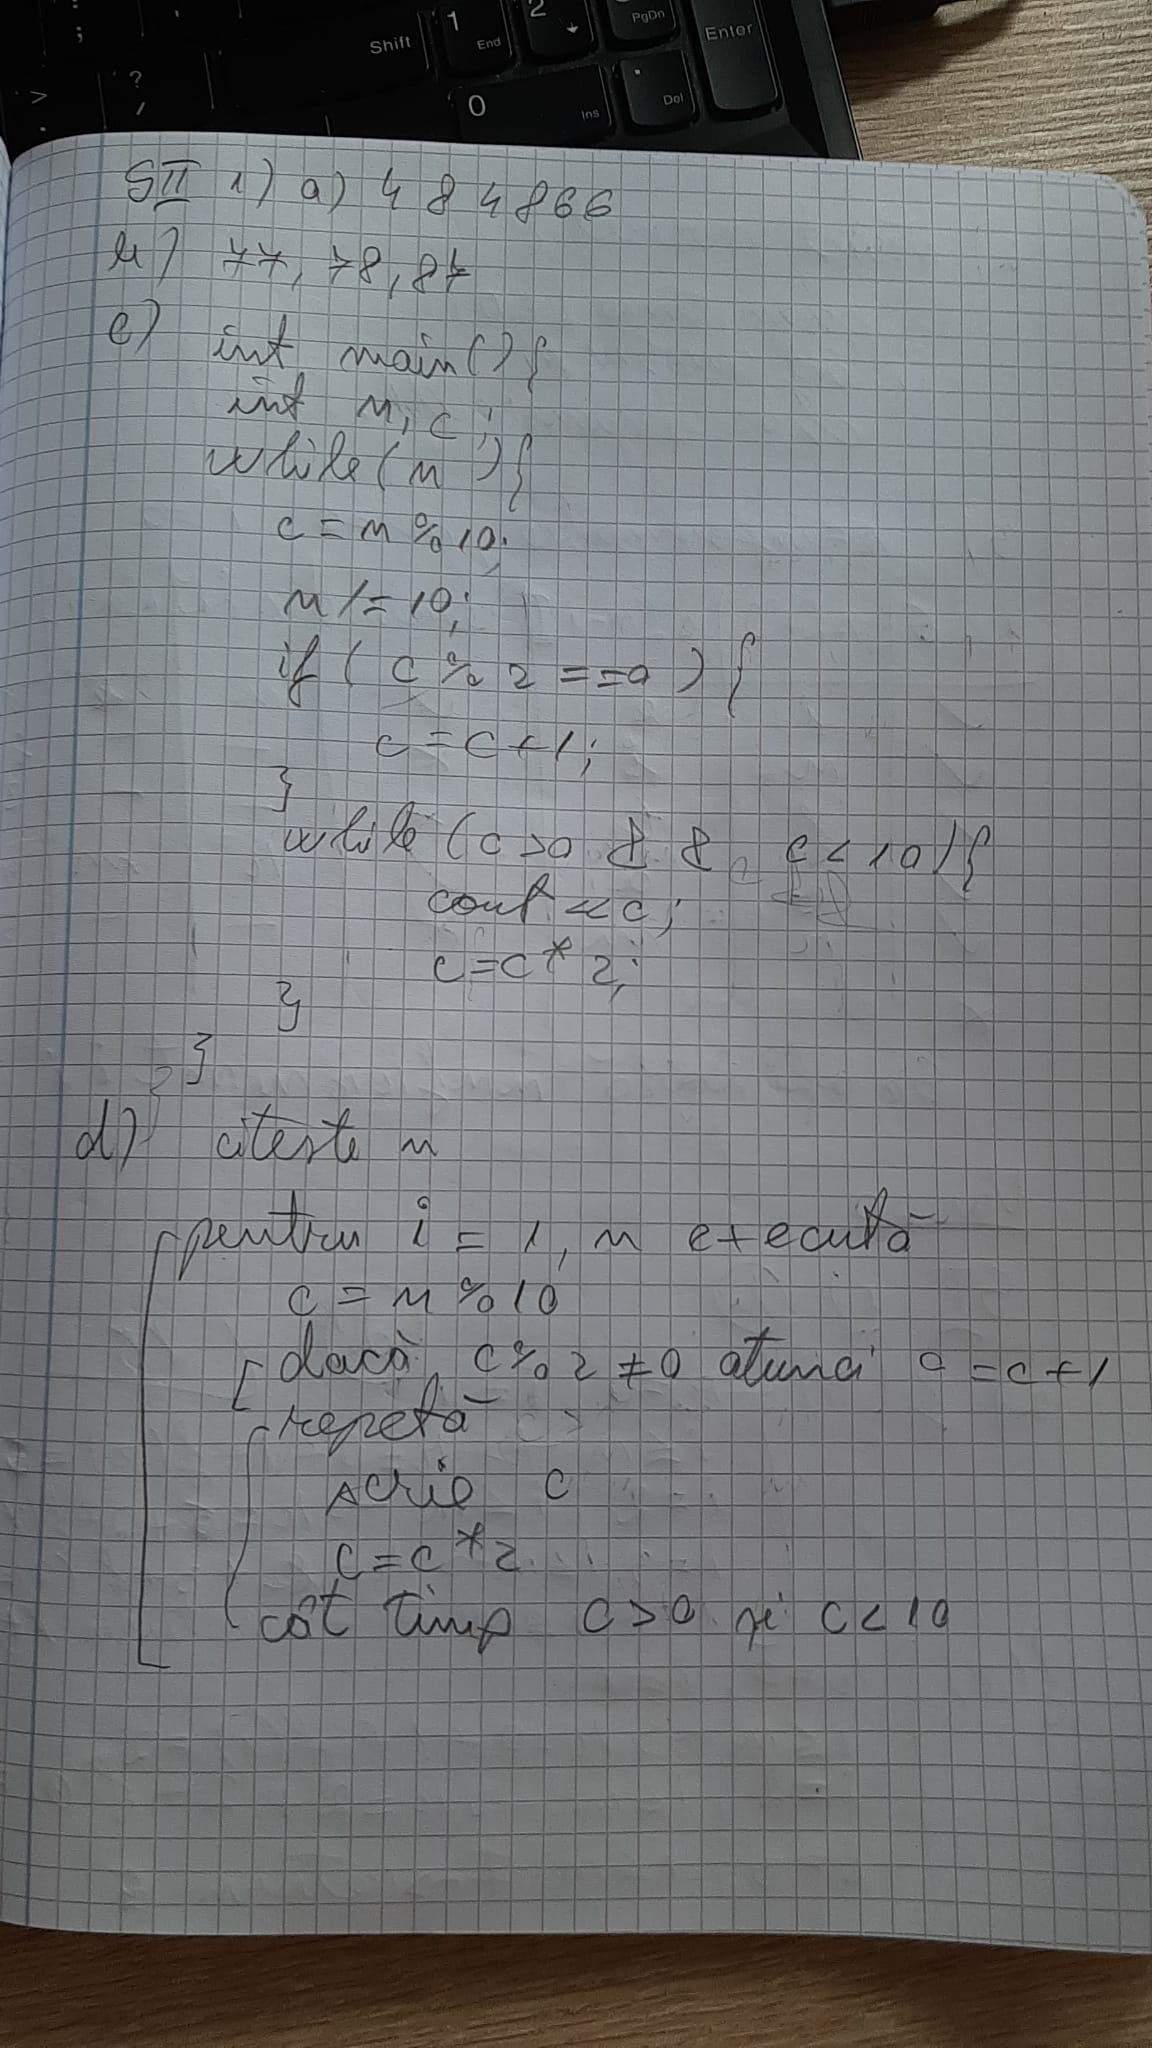 Shift
1
End
2
PgDn
Enter
?
/
>
.
;
0
Ins
.
Del
SII 1) a) 484866
b) 77, 78, 87
c) int main(){
int n, c;
while(n){
c = n % 10;
n /= 10;
if (c % 2 == 0) {
c = c + 1;
}
while (c > 0 && c < 10){
cout << c;
c = c * 2;
}
}
d) citeste n
pentru i = 1, n execută
c = n % 10
dacă c % 2 ≠ 0 atunci c = c + 1
repetă
scrie c
c = c * 2
cât timp c > 0 și c < 10